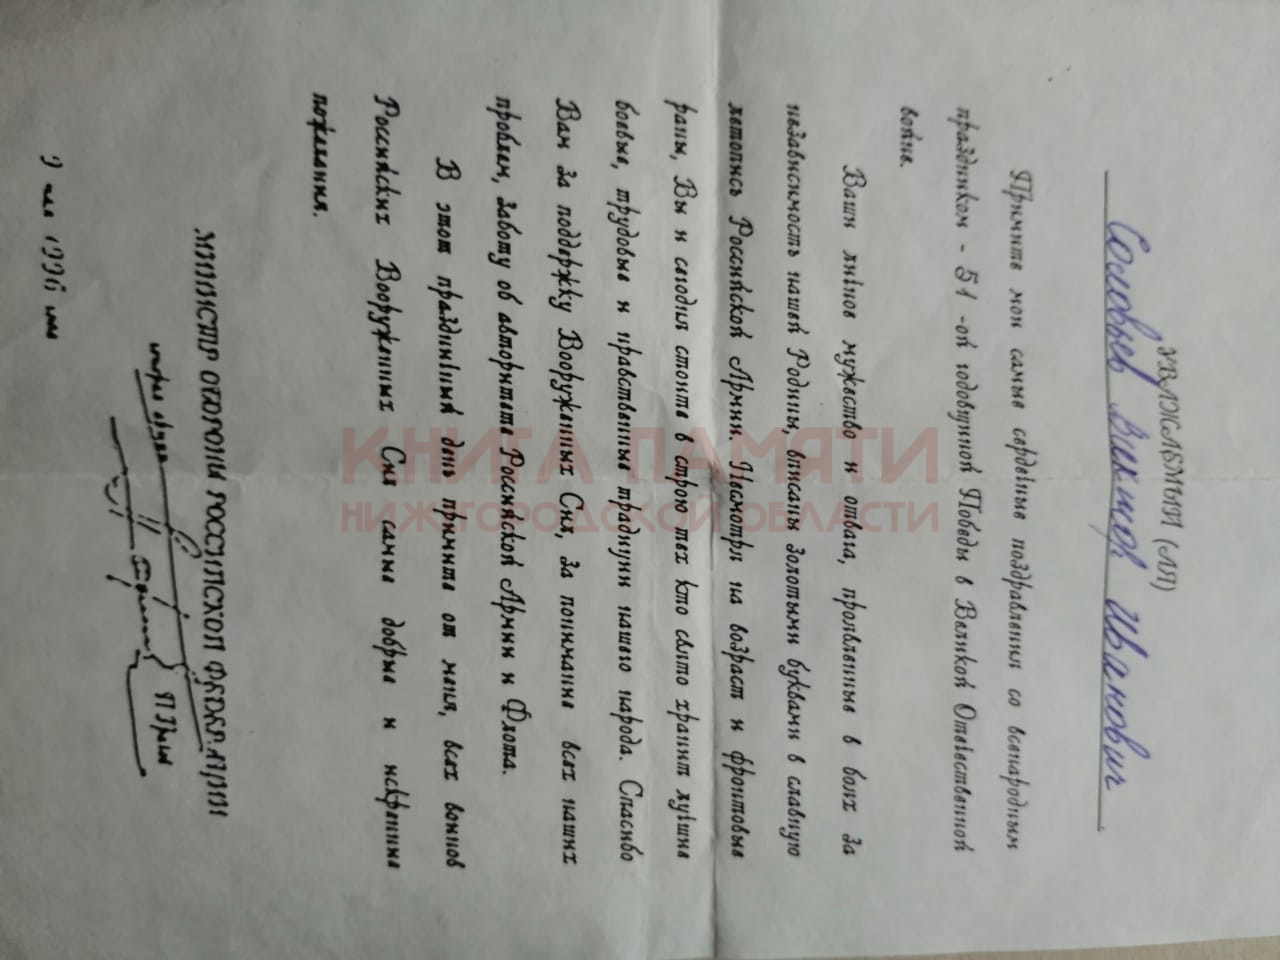 УВАЖАЕМЫЙ (АЯ)
Соловьев Виктор Иванович
Примите мои самые сердечные поздравления со всенародным
праздником - 51 -ой годовщиной Победы в Великой Отечественной
войне.
Ваши личное мужество и отвага, проявленные в боях за
независимость нашей Родины, вписаны золотыми буквами в славную
летопись Российской Армии. Несмотря на возраст и фронтовые
раны, Вы и сегодня стоите в строю тех кто свято хранит лучшие
боевые, трудовые и нравственные традиции нашего народа. Спасибо
Вам за поддержку Вооруженных Сил, за понимание всех наших
проблем, заботу об авторитете Российской Армии и Флота.
В этот праздничный день примите от меня, всех воинов
Российских Вооруженных Сил самые добрые и искренние
пожелания.
МИНИСТР ОБОРОНЫ РОССИЙСКОЙ ФЕДЕРАЦИИ
генерал армии П.Грачев
9 мая 1996 года
КНИГА ПАМЯТИ
НИЖЕГОРОДСКОЙ ОБЛАСТИ